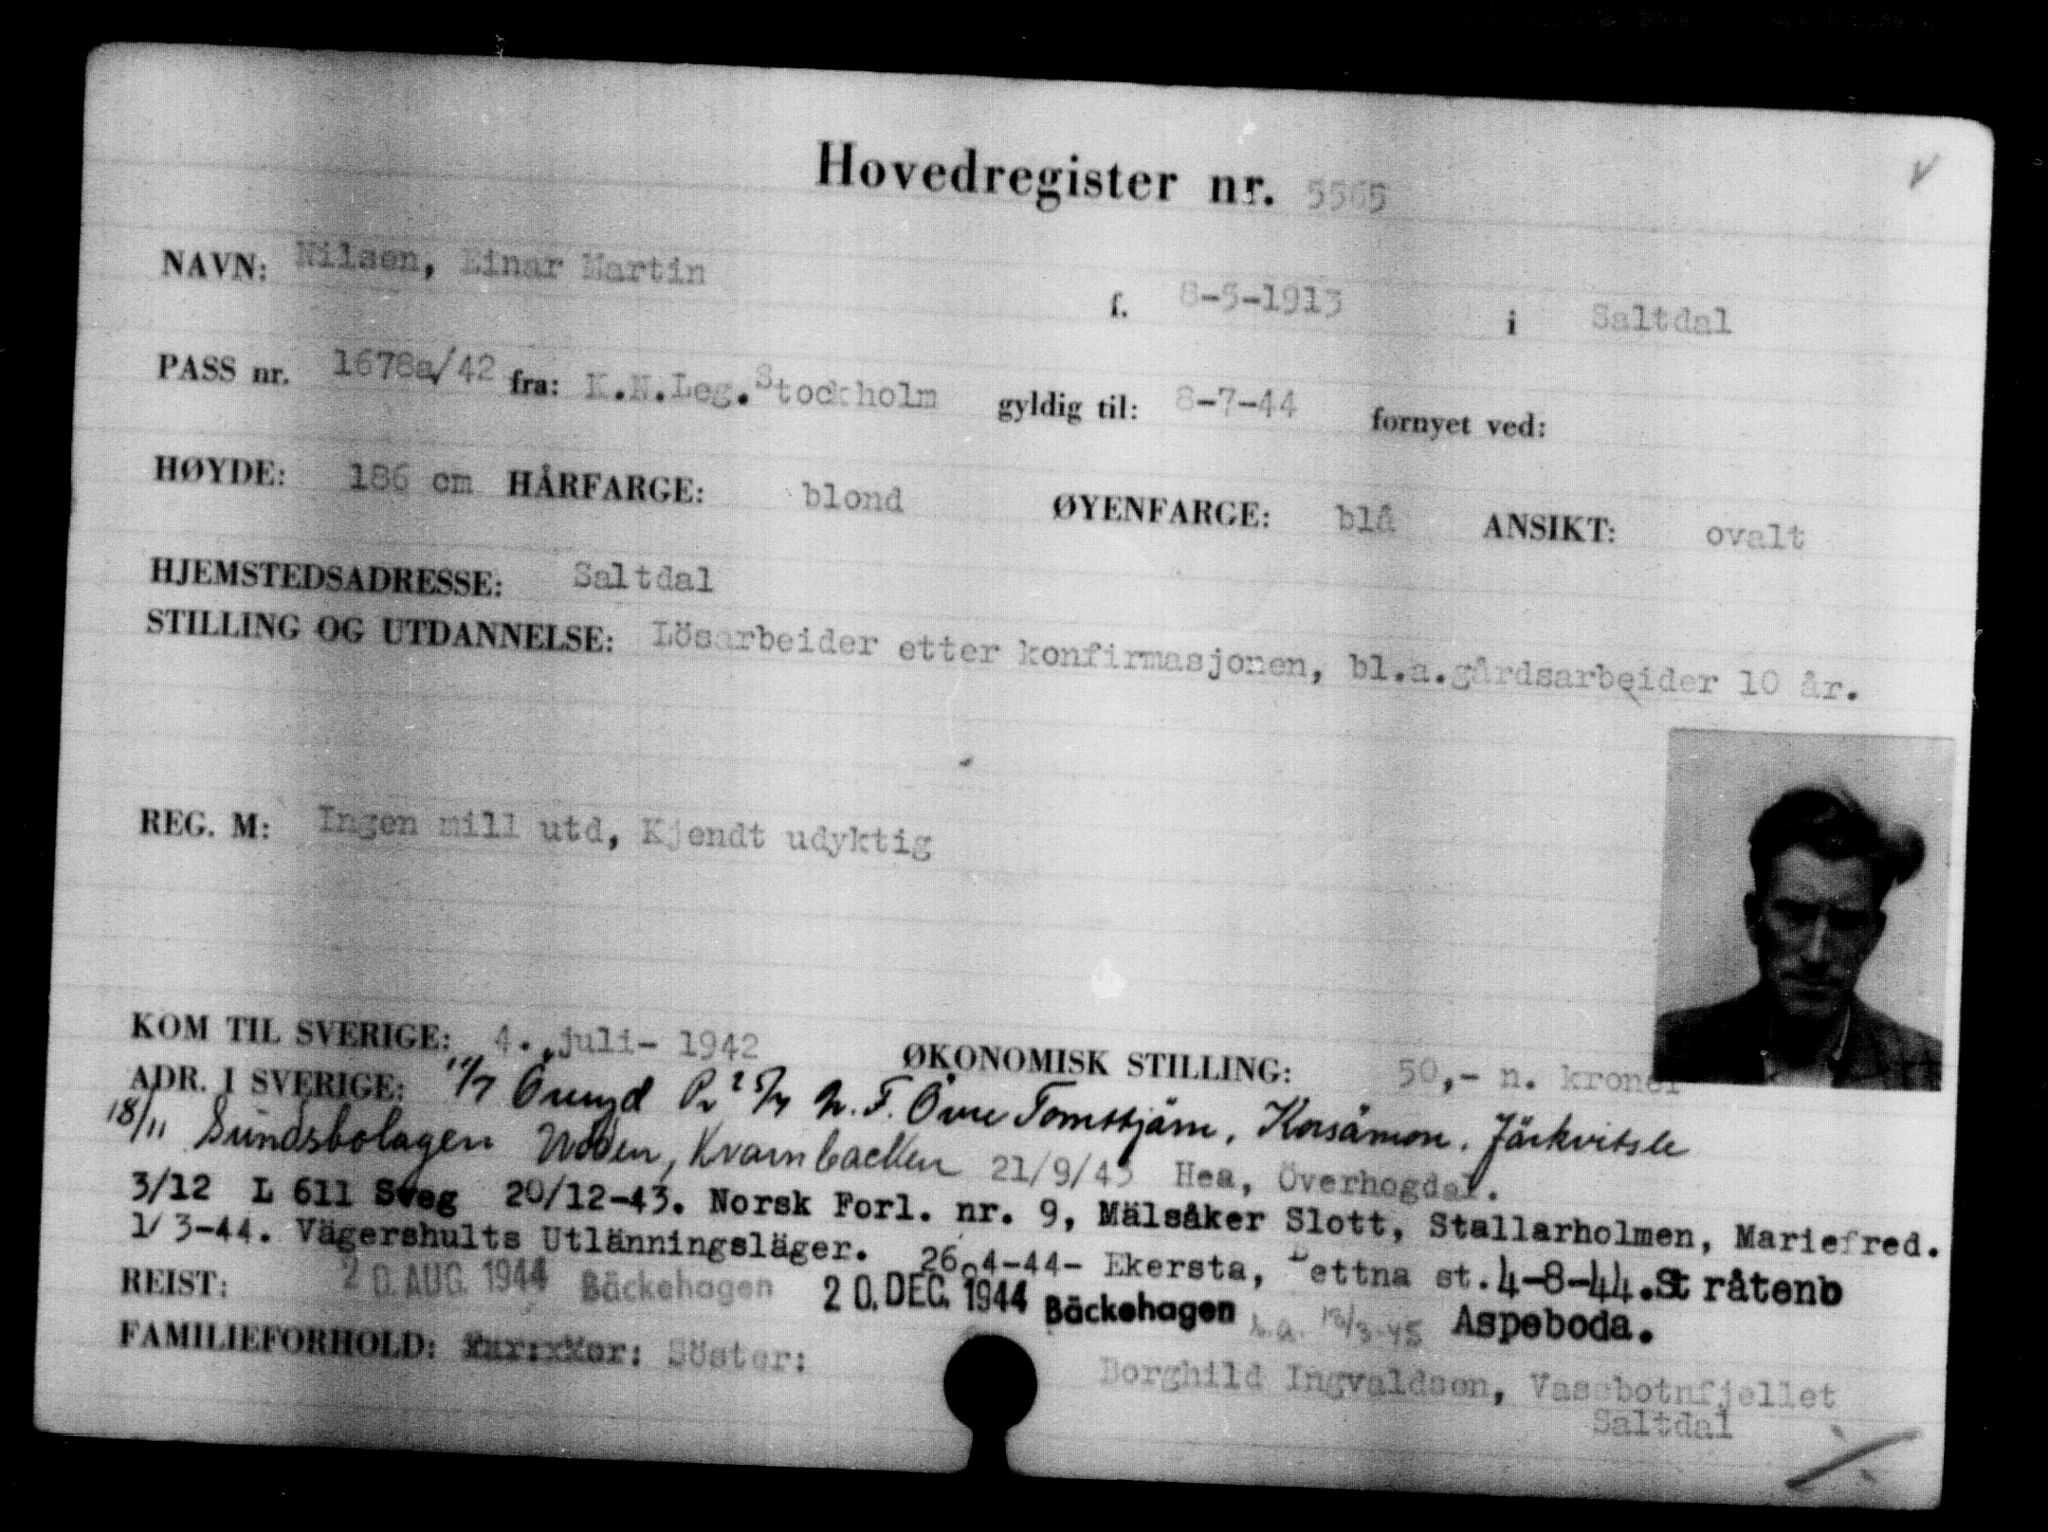 Hovedregister nr. 5565
NAVN: Nilsen, Einar Martin f. 8-5-1913 i Saltdal
PASS nr. 1678a/42 fra: K.N.Leg. Stockholm gyldig til: 8-7-44 fornyet ved:
HØYDE: 186 cm HÅRFARGE: blond ØYENFARGE: blå ANSIKT: ovalt
HJEMSTEDSADRESSE: Saltdal
STILLING OG UTDANNELSE: Lösarbeider etter konfirmasjonen, bl.a.gårdsarbeider 10 år.
REG. M: Ingen mill utd, Kjendt udyktig
KOM TIL SVERIGE: 4. juli- 1942 ØKONOMISK STILLING: 50,- n. kroner
ADR. I SVERIGE: Öreryd Pr 25/7 Övre Tomstjärn, Korsåmon, Järkvitsle
18/11 Sundsbolagen Kvarnbacken 21/9/43 Hea, Överhogdal.
3/12 L 611 Sveg 20/12-43. Norsk Forl. nr. 9, Mälsåker Slott, Stallarholmen, Mariefred.
1/3-44. Vägershults Utlänningsläger. 26.4-44- Ekersta, Bettna st. 4-8-44. Stråtenb
REIST: 20. AUG. 1944 Bäckehagen 20. DEC. 1944 Bäckehagen 13/3-45 Aspeboda.
FAMILIEFORHOLD: Söster: Borghild Ingvaldsen, Vassbotnfjellet
Saltdal